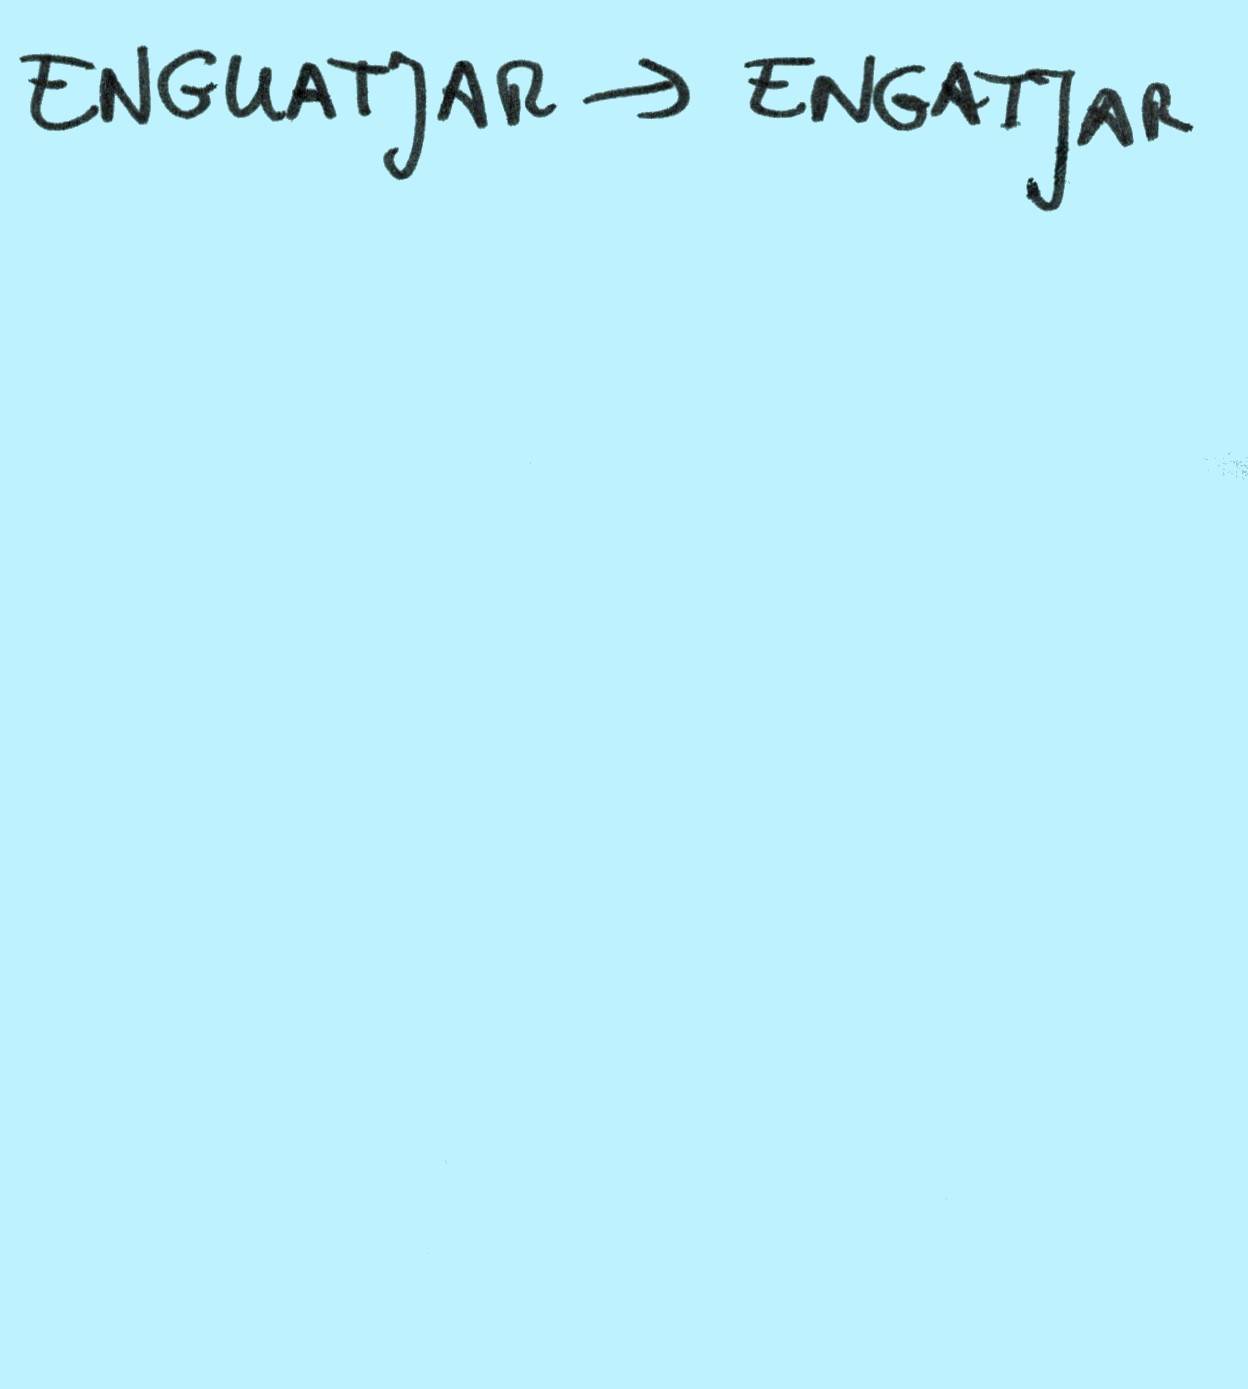 ENGUATJAR → ENGATJAR